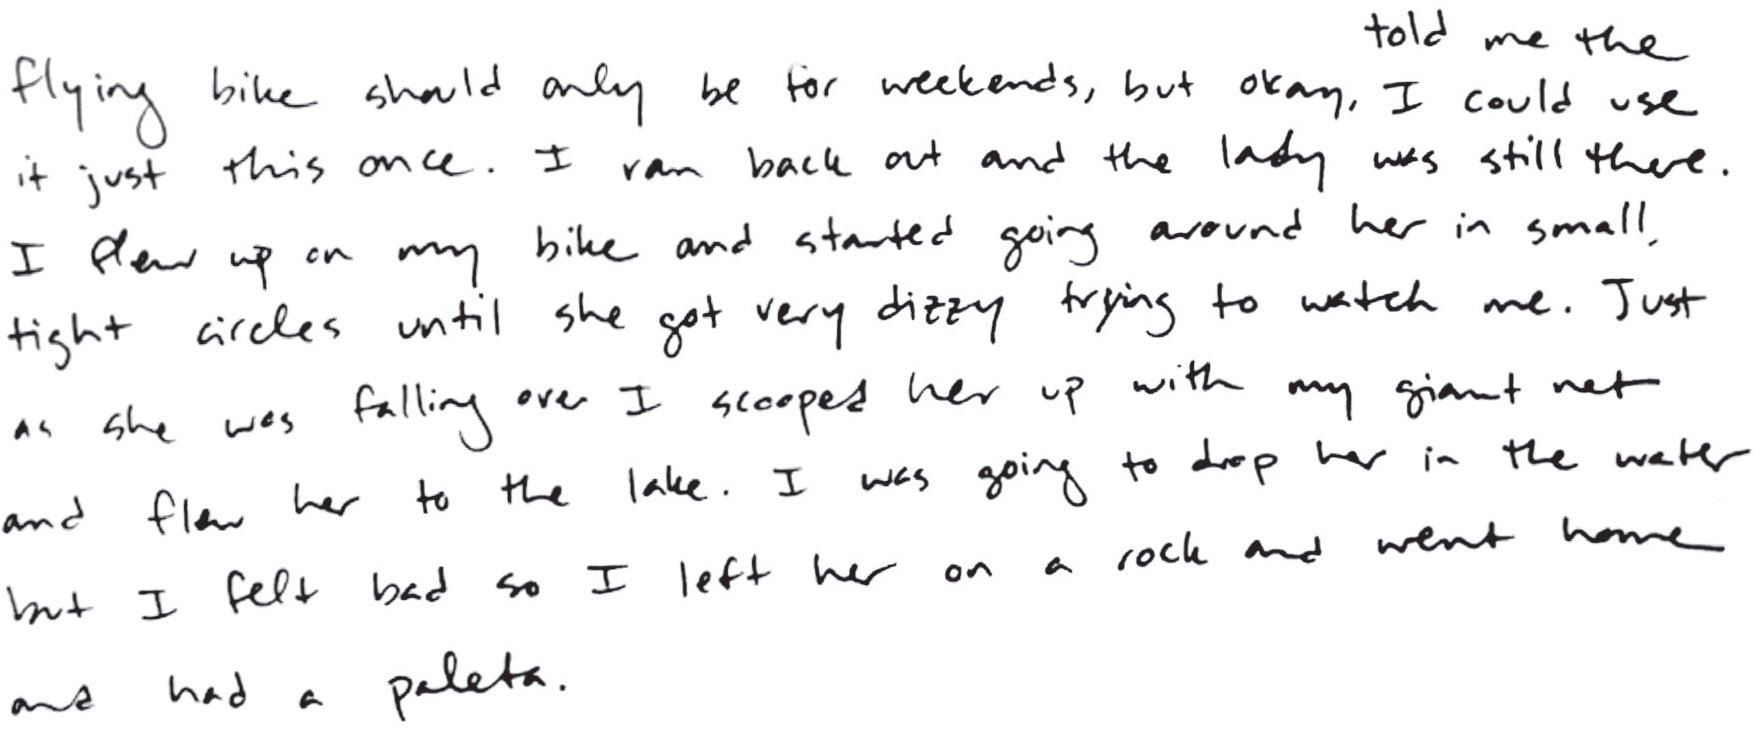 told me the
flying bike should only be for weekends, but okay, I could use
it just this once. I ran back out and the lady was still there.
I flew up on my bike and started going around her in small,
tight circles until she got very dizzy trying to watch me. Just
as she was falling over I scooped her up with my giant net
and flew her to the lake. I was going to drop her in the water
but I felt bad so I left her on a rock and went home
and had a paleta.